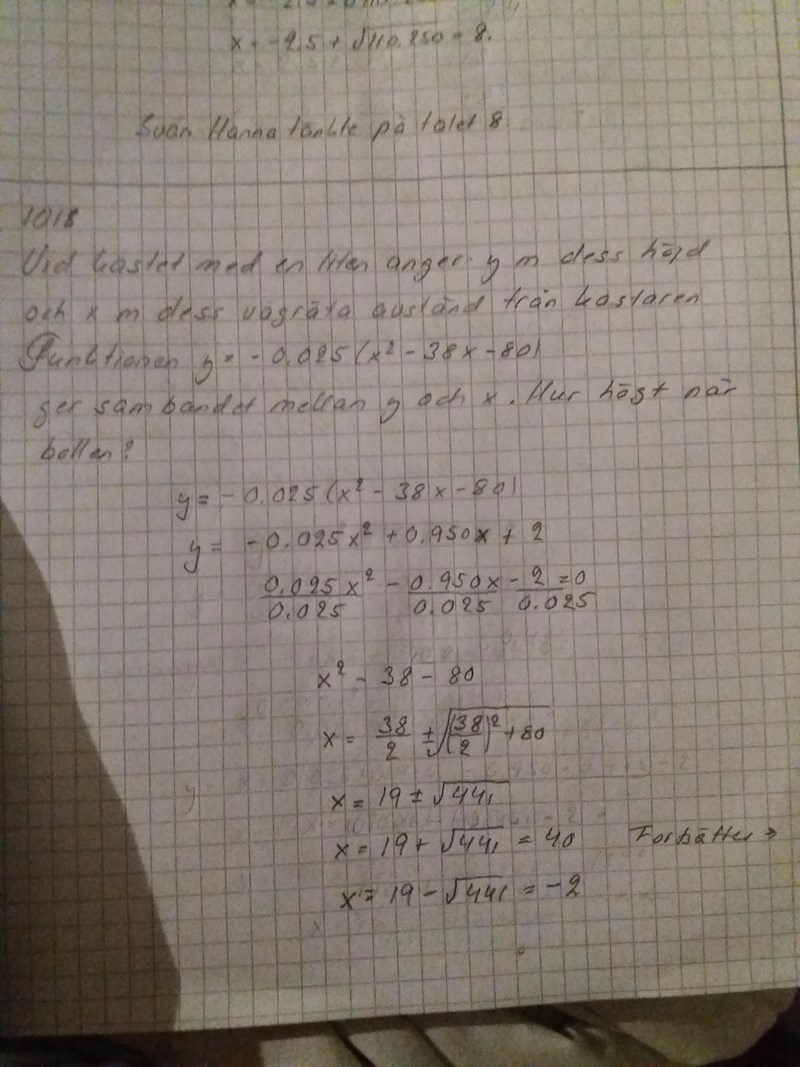 x = -2,5 + √110.250 = 8.
Svar Hanna tänkte på talet 8.
1018
Vid kastet med en liten anger y m dess höjd
och x m dess vågräta avstånd från kastaren
Funktionen y = -0.025(x² - 38x - 80)
ger sambandet mellan y och x. Hur högt når
bollen?
y = -0.025(x² - 38x - 80)
y = -0.025x² + 0.950x + 2
0.025x²/0.025 - 0.950x/0.025 - 2/0.025 = 0
x² - 38 - 80
x = 38/2 ± √(38/2)² + 80
x = 19 ± √441
x = 19 + √441 = 40 Forsätter →
x = 19 - √441 = -2